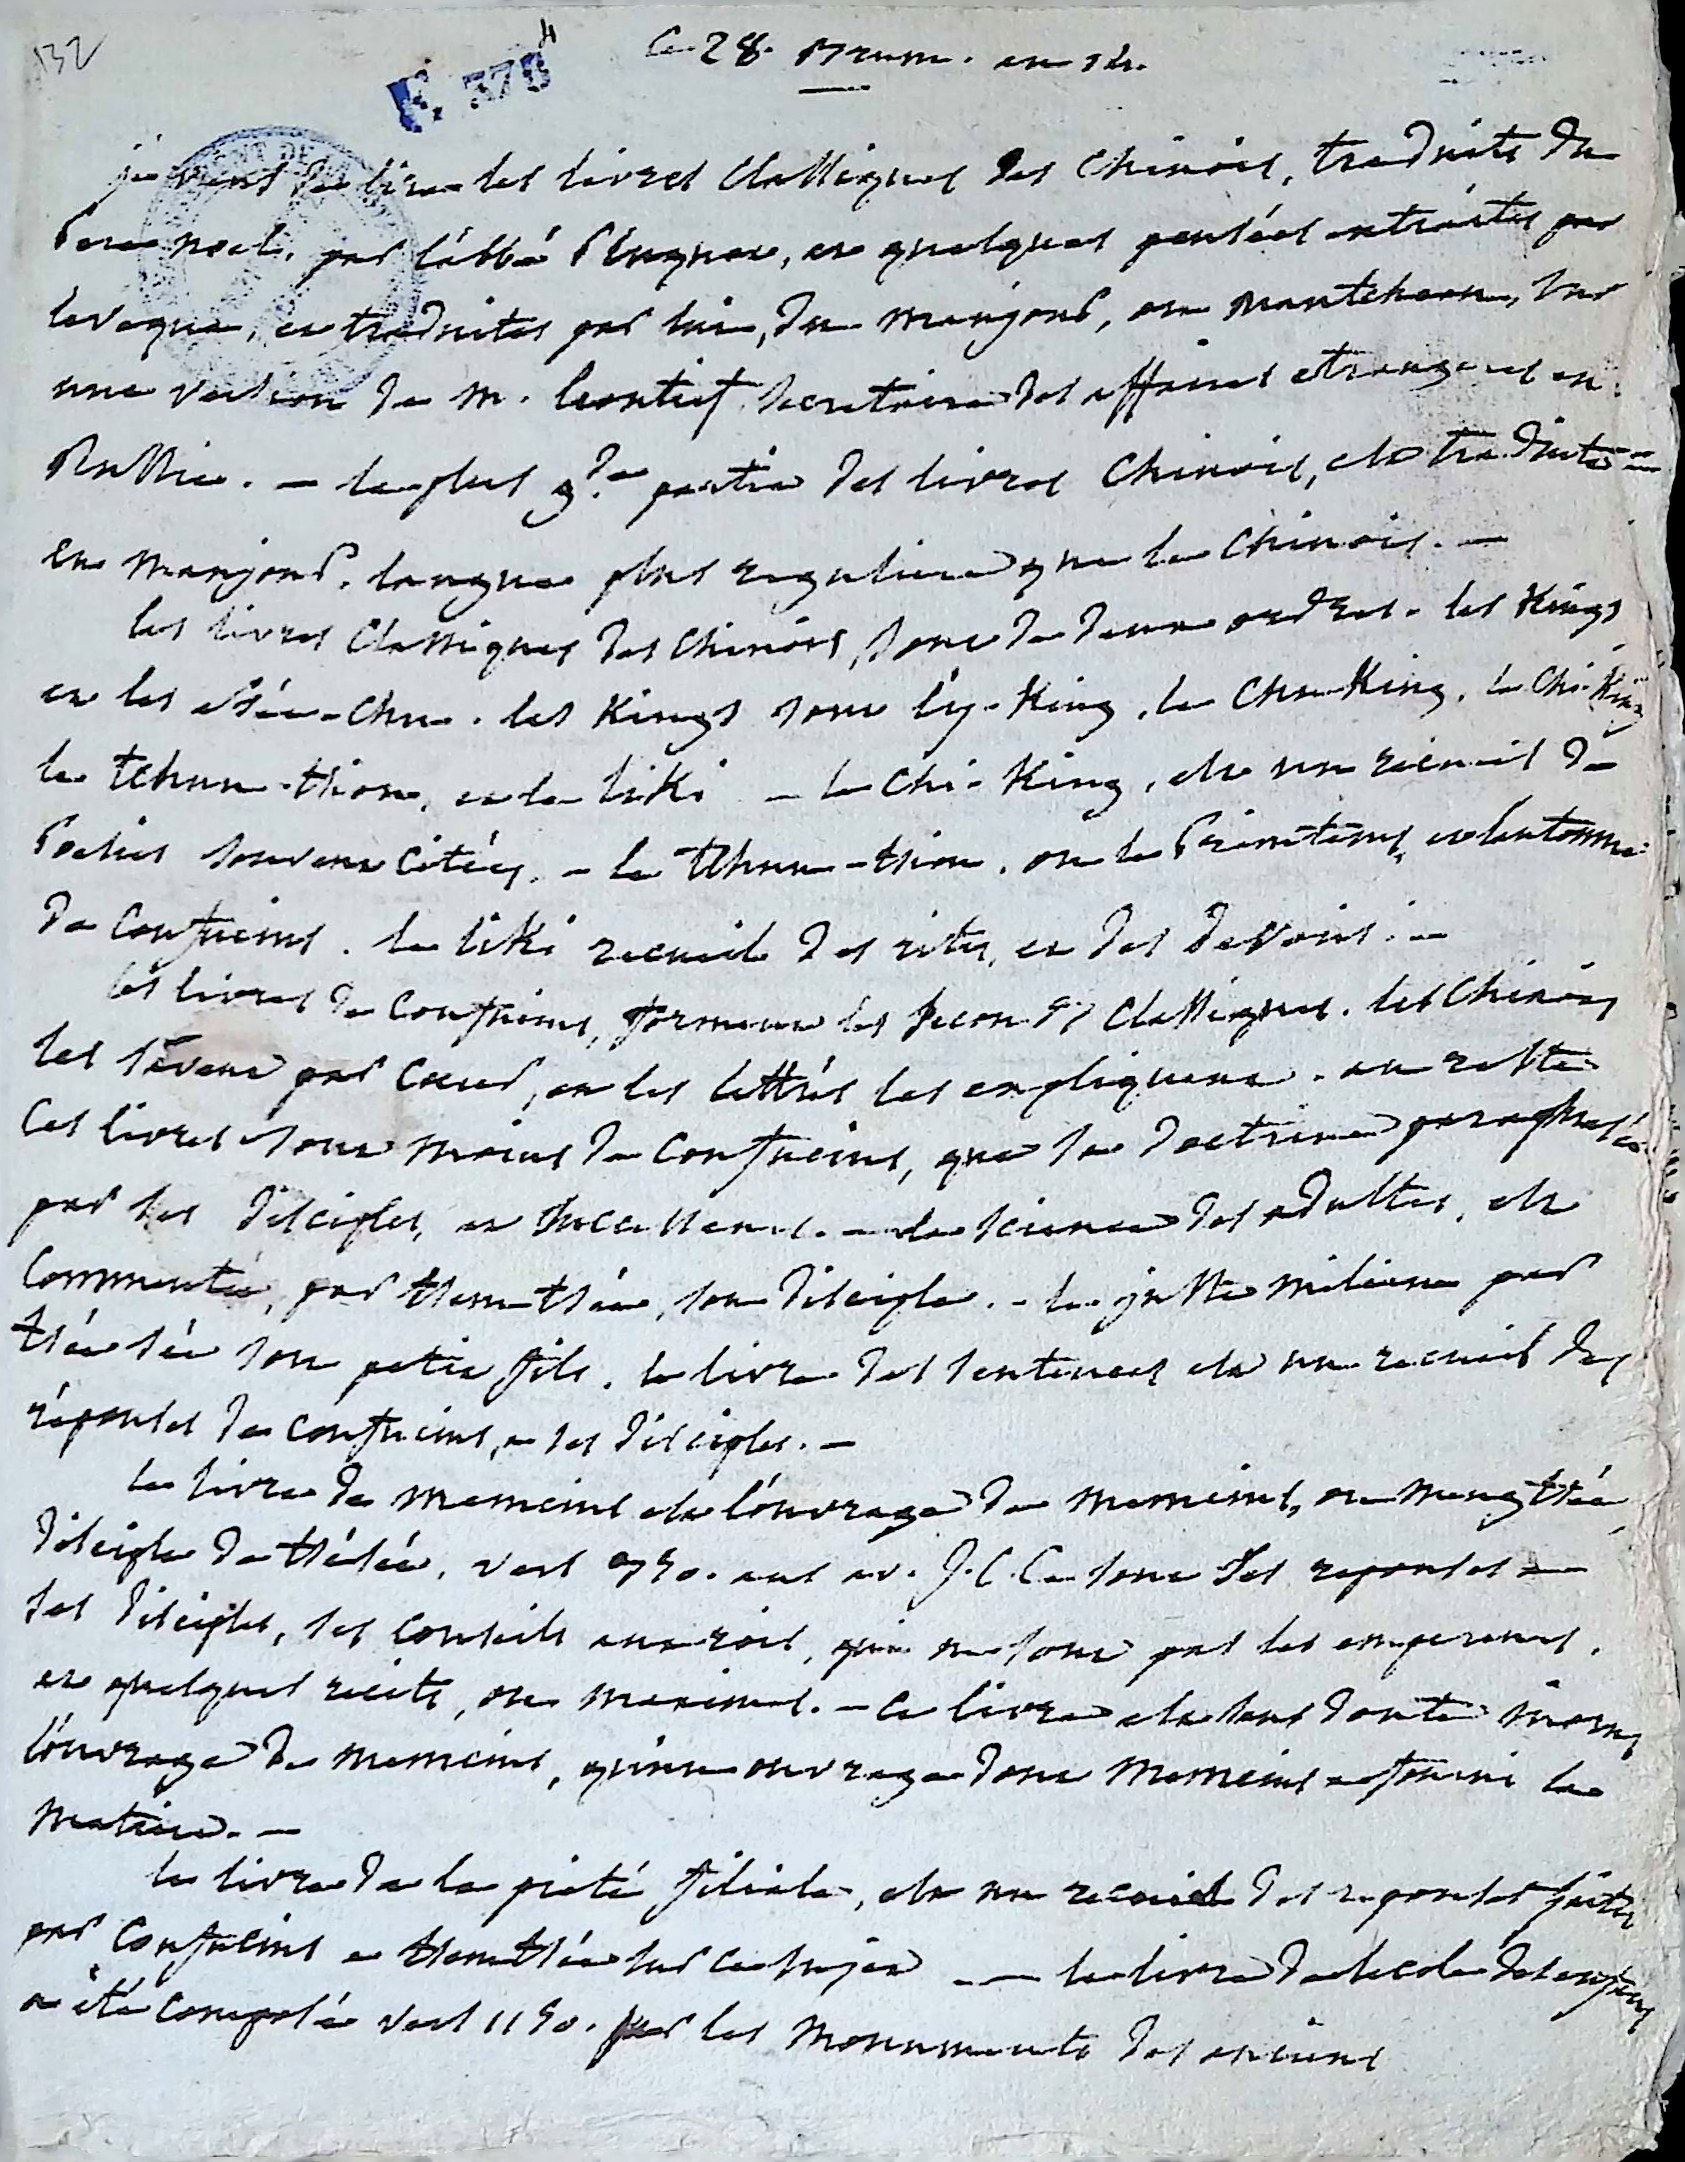 132
F. 370
Ce 28. Brum. an 12.
je viens de lire les livres classiques des Chinois, traduits du
Pere noel, par l'abbé Pluquet, et quelques pensées extraites par
leveque, et traduites par lui, du manjour, ou mantcheou, sur
une version de M. Leontief secretaire des affaires etrangeres en
Russie. — la plus gde partie des livres Chinois, est traduite
en manjour, langue plus reguliere que le Chinois. —
les livres classiques des Chinois, sont de deux ordres. les Kings
et les sée-Chu. les Kings sont l'y-King, le Chu-King, le Chi-King
le tchun-tsiou, et le liKi — le Chi-King, est un recueil de
Poesies souvent citées. — le tchun-tsiou, ou le Printems, et l'automne
de Confucius. le liKi recueil des rites, et des devoirs. —
les livres de Confucius, forment les seconds classiques. les Chinois
les savent par cœur, et les lettrés les expliquent. au reste
ces livres sont moins de Confucius, que sa doctrine paraphrasée
par ses disciples, et successeurs. — la science des adultes, est
commentée, par tsem-tsée, son disciple. — le juste milieu par
tsée sée son petit fils. le livre des sentences est un recueil des
réponses de Confucius, a ses disciples. —
le livre de Memcius est l'ouvrage de Memcius, ou Mengtsée,
disciple de tsésée, vers 350. ans av. J. C. Ce sont des reponses a
ses disciples, ses conseils aux rois, qui ne sont pas les empereurs,
et quelques recits, ou maximes. — Ce livre est sans doute moins
l'ouvrage de Memcius, qu'un ouvrage dont Memcius a fourni la
matiere. —
le livre de la pieté filiale, est un recueil des reponses faites
par Confucius a tsemtsée sur ce sujet — le livre de l'ecole des enfans
a été composé vers 1150. par les monuments des anciens